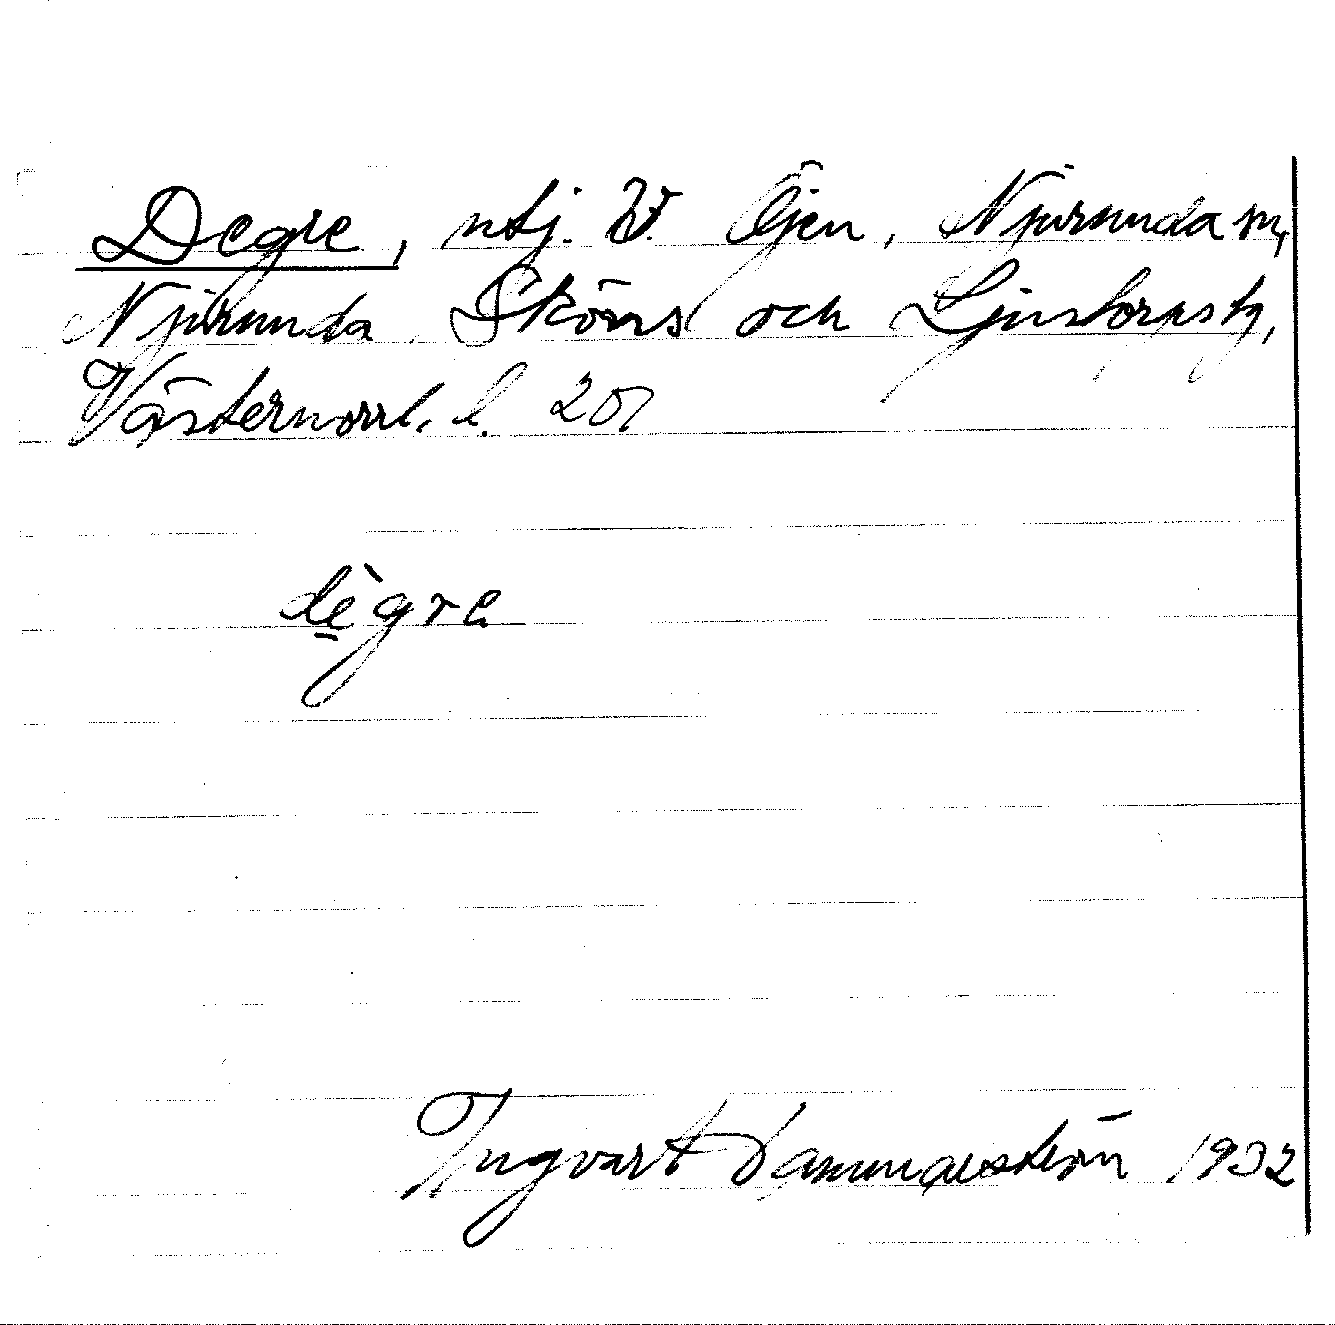 Degre, utj. V. Öjen, Njurunda sn,
Njurunda, Sköns och Ljustorps tg,
Västernorrl. l. 207
dègre
Ingvart 1932